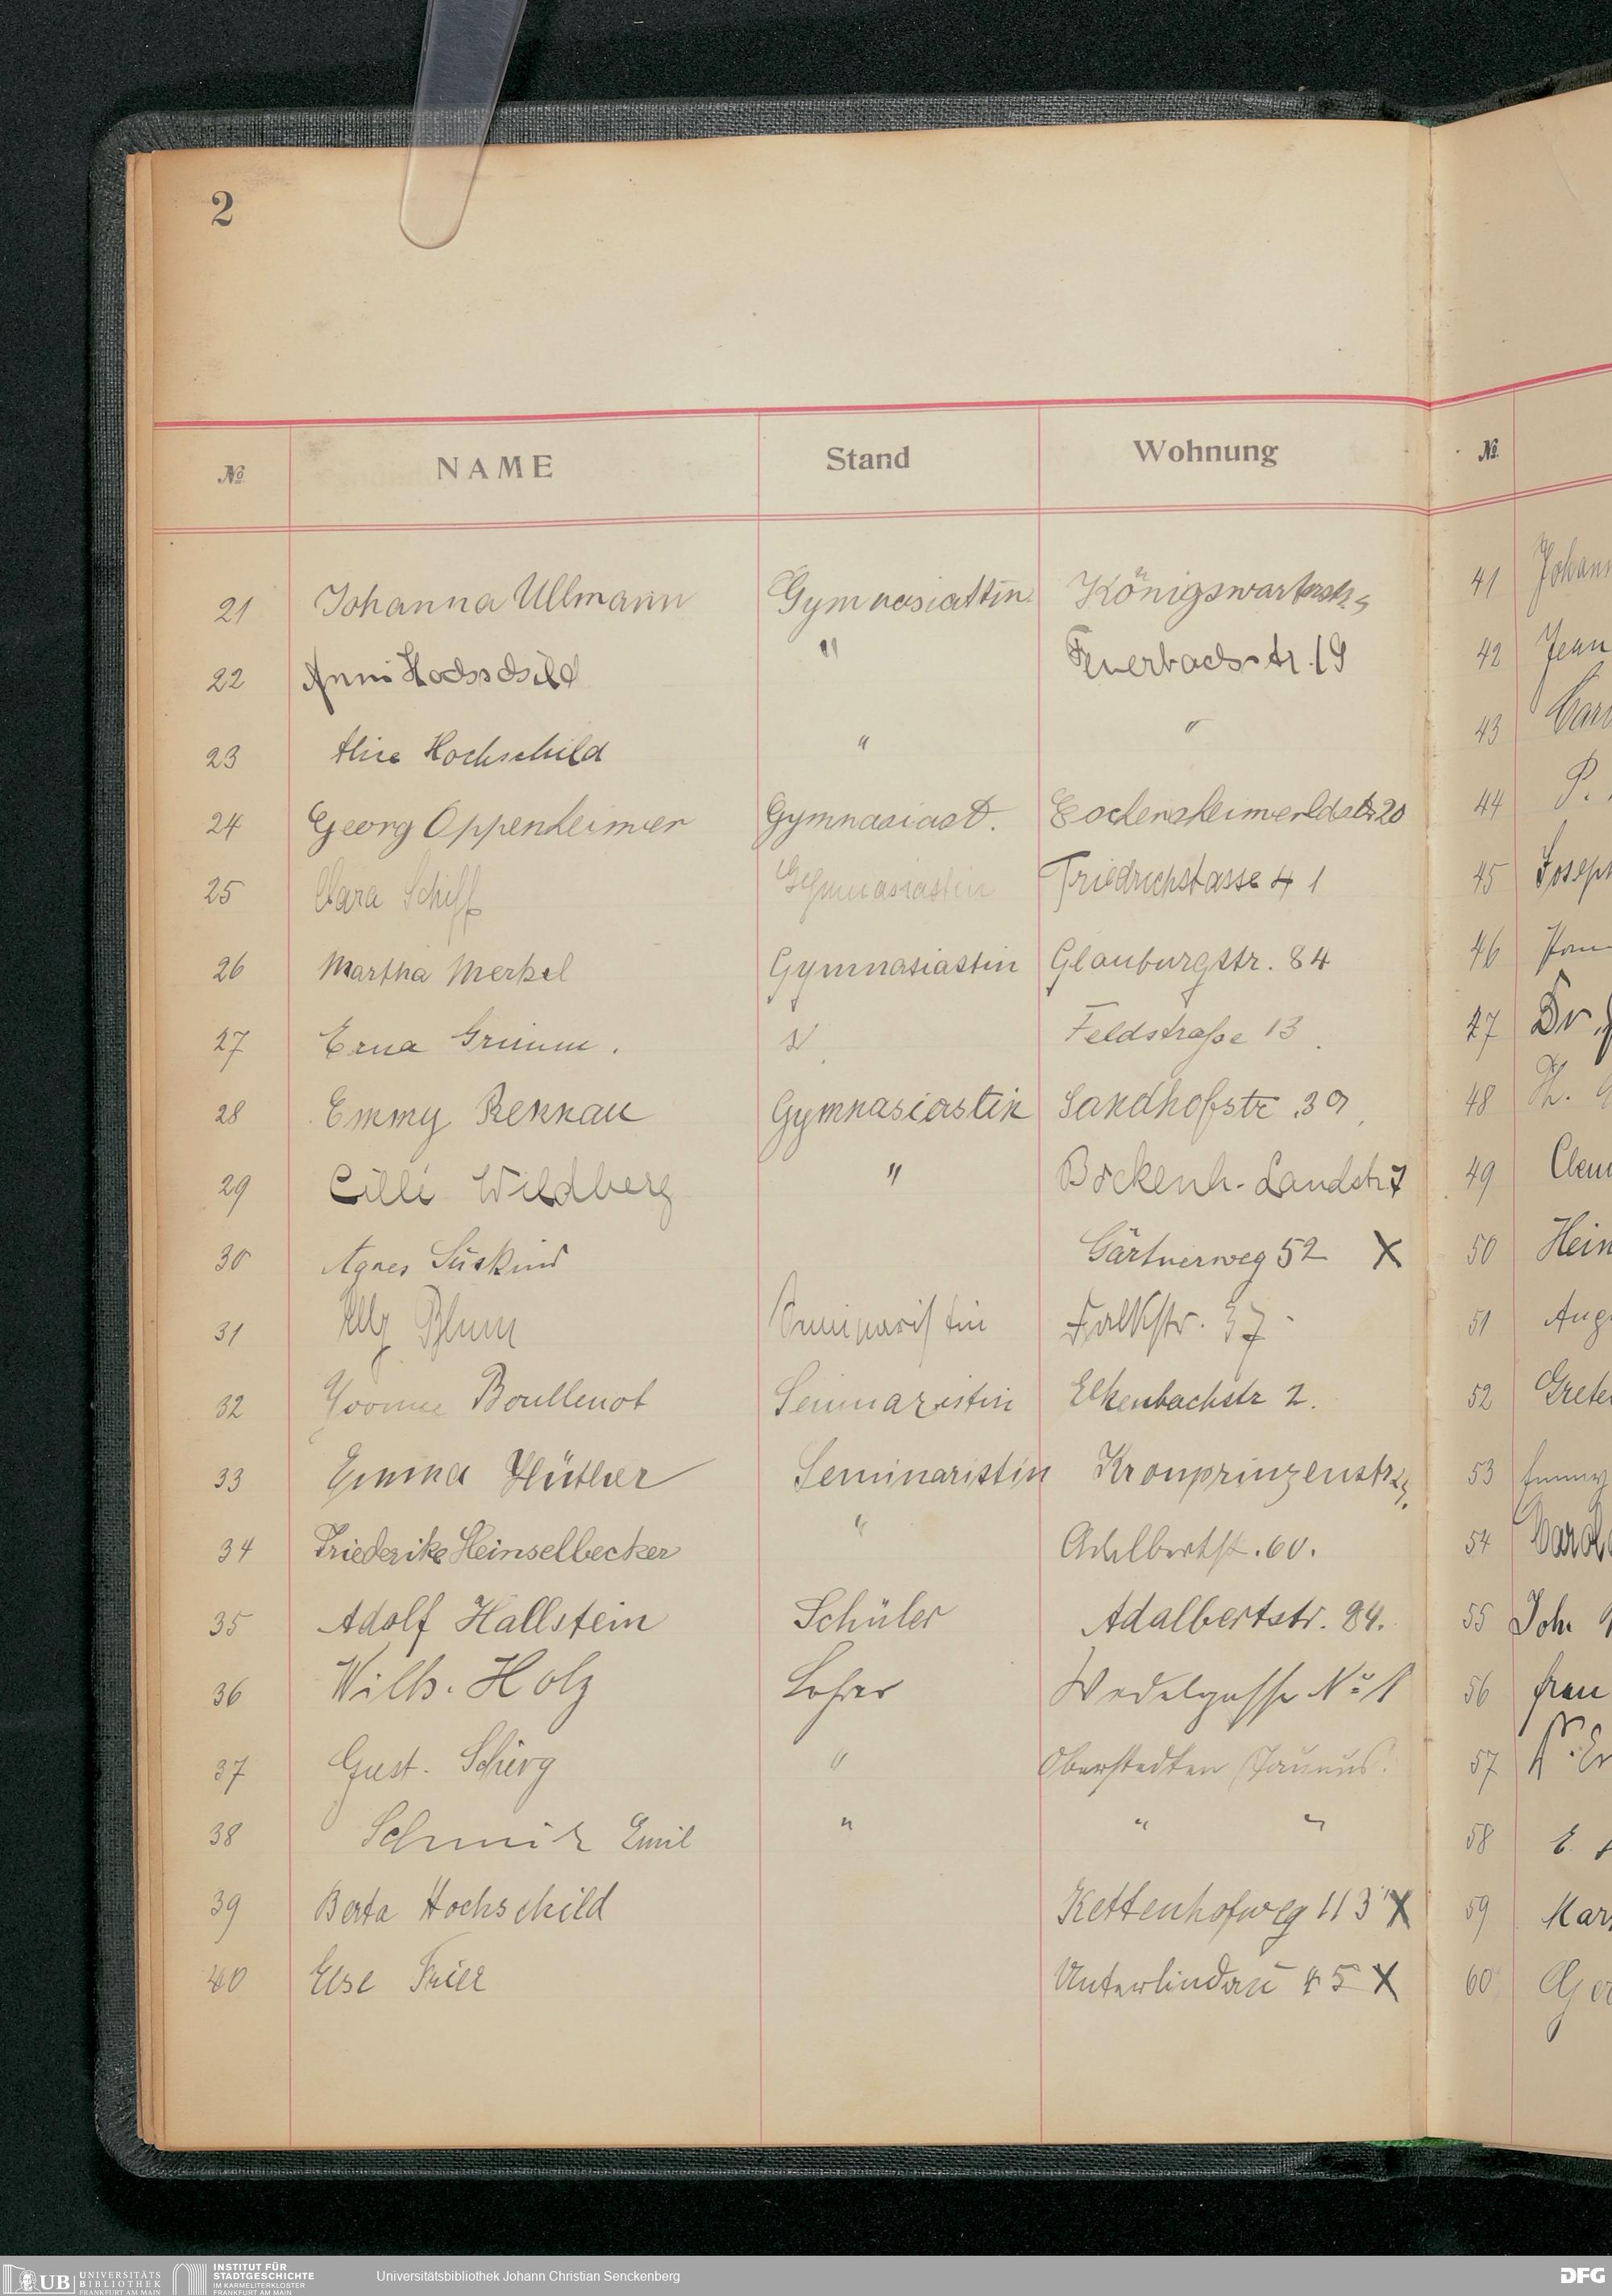 2
№ NAME Stand Wohnung
21 Johanna Ullmann Gymnasiastin
22 Anni Hochschild " Feuerbachstr. 19
23 Alice Hochschild " "
24 Georg Oppenheimer Gymnasiast. 20
25 Clara Schiff Gymnasiastin Friedrichstasse 41
26 Martha Merkel Gymnasiastin Glauburgstr. 84
27 Erna Grimm. " Feldstraße 13.
28 Emmy Rennau Gymnasiastin Sandhofstr. 39
29 Cilli Wildberg " Bockenh. Landstr. 7
30 Agnes Süskind Gärtnerweg 52 X
31 Elly Blum Seminaristin Falkstr. 37
32 Yvonne Boullenot Seminaristin Elkenbachstr 2.
33 Emma Hüther Seminaristin Kronprinzenstr
34 Friederike Heinselbecker " Adelbertst. 60.
35 Adolf Hallstein Schüler Adalbertstr. 84.
36 Wilh. Holz Lehrer Wedelgasse No 1
37 Gust. " Oberstedten Taunus
38 Emil " " "
39 Berta Hochschild Kettenhofweg 113 X
40 Else Unterlindau 45 X
№
41 Johann
42 Jean
43 Car
44 P.
45 Joseph
46
47 Dr.
48
49 Clem
50 Hein
51 Aug
52 Grete
53 Emmy
54 Carol
55 Joh.
56 Frau
57
58 E.
59 Mar
60
UB UNIVERSITÄTS
BIBLIOTHEK
FRANKFURT AM MAIN
INSTITUT FÜR
STADTGESCHICHTE
IM KARMELITERKLOSTER
FRANKFURT AM MAIN
Universitätsbibliothek Johann Christian Senckenberg
DFG